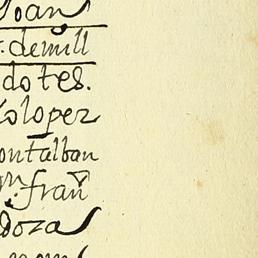 Joan
r. demill
dotes.
Xolopez
ontalban
on. fran
doza